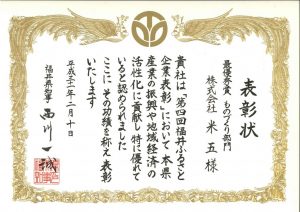 表彰状
最優秀賞 ものづくり部門
株式会社 米五 様
貴社は「第四回福井ふるさと
企業表彰」において本県
産業の振興や地域経済の
活性化に貢献し特に優れて
いると認められました
ここにその功績を称え表彰
いたします
平成二十一年二月十日
福井県知事 西川一誠